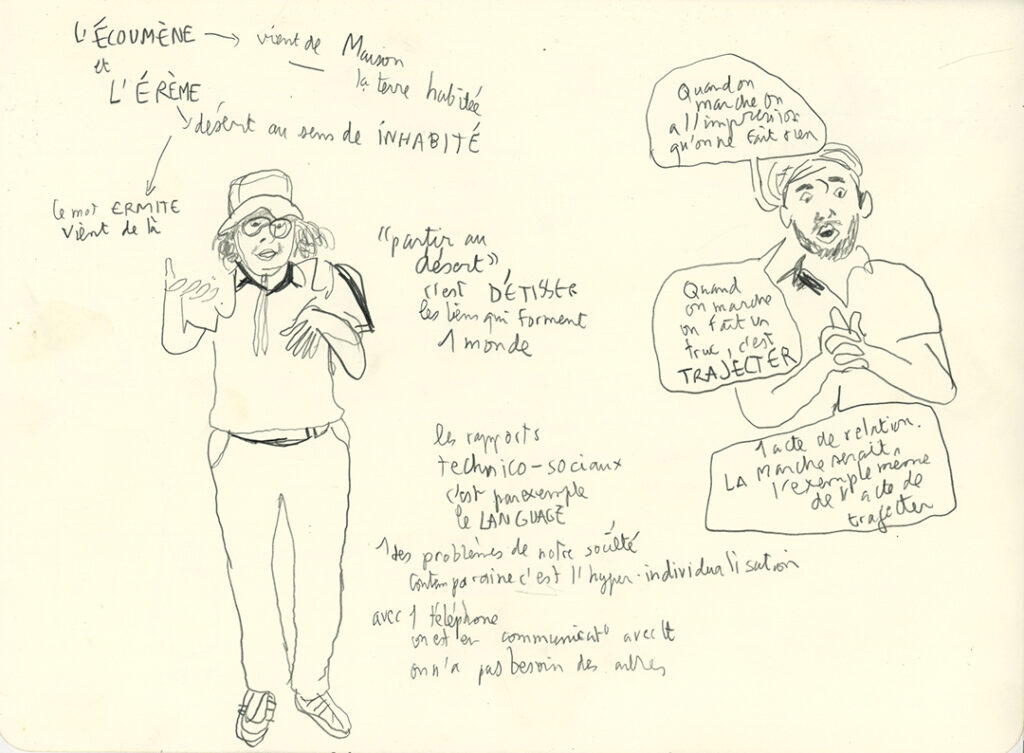 L'ÉCOUMÈNE → vient de Maison
la terre habitée
et
L'ÉRÈME
désert au sens de INHABITÉ
le mot ERMITE
vient de là
"partir au
désert"
c'est DÉTISSER
les liens qui forment
1 monde
les rapports
technico-sociaux
c'est par exemple
le LANGUAGE
1 des problèmes de notre société
contemporaine c'est l'hyper-individualisation
avec 1 téléphone
on est en communicat° avec
on n'a pas besoin des autres
Quand on
marche on
a l'impression
qu'on ne fait rien
Quand
on marche
on fait un
truc, c'est
TRAJECTER
1 acte de relation.
LA marche serait
l'exemple même
de l'acte de
trajecter